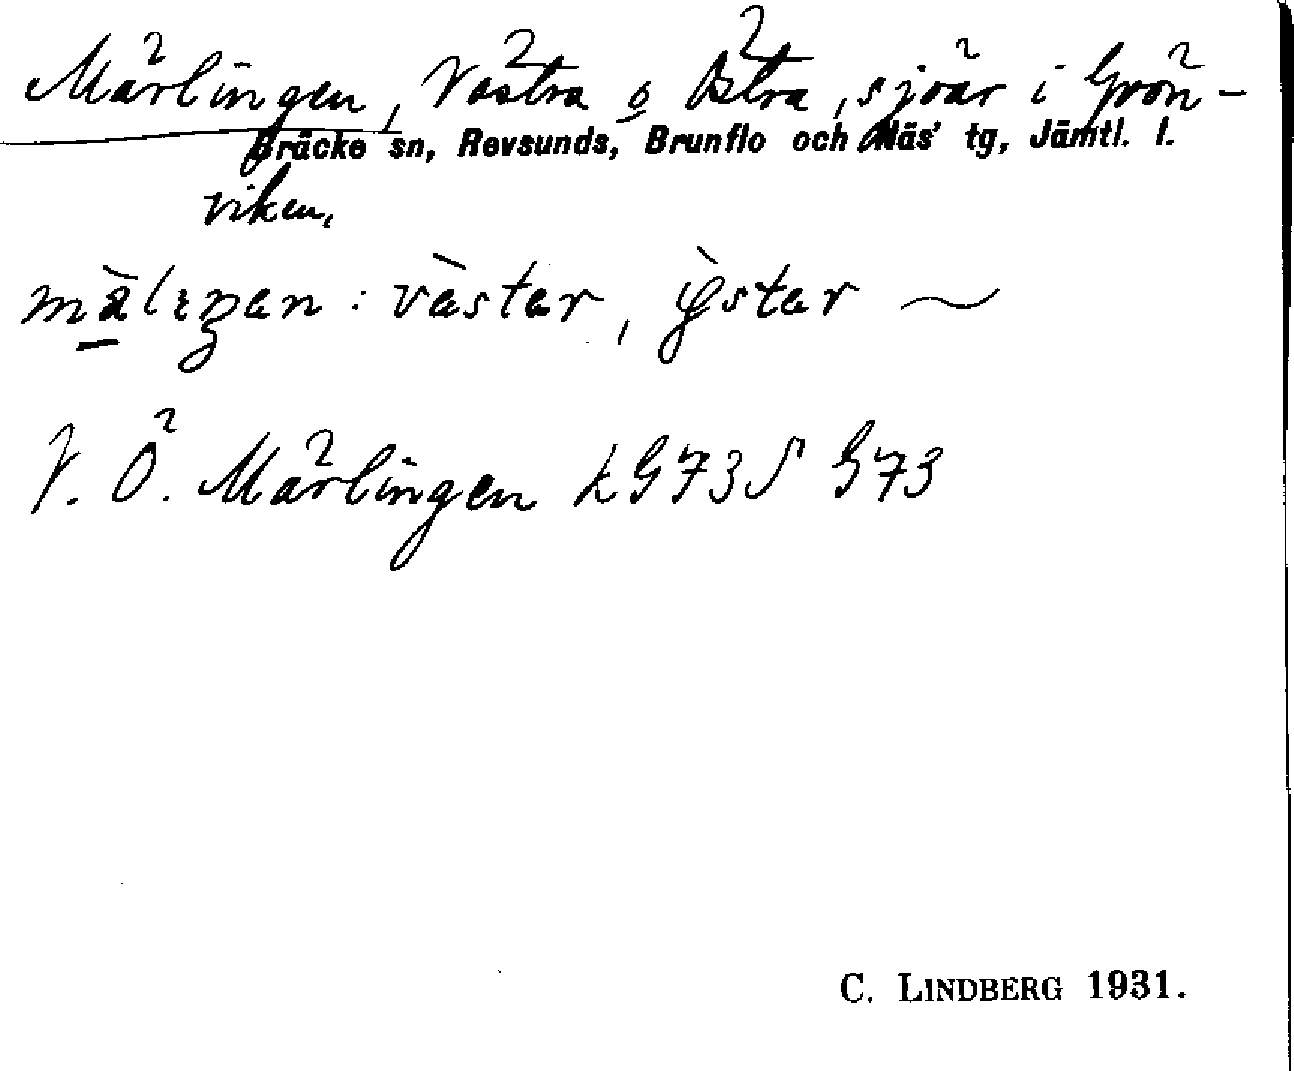 Märlingen, Västra o Östra, sjöar i Grön-
Bräcke sn, Revsunds, Brunflo och Näs' tg, Jämtl. l.
viken.
mä̀lıŋen : vä̀ster, ø̀ster ~
V. Ö. Märlingen LG73S G73
C. LINDBERG 1931.